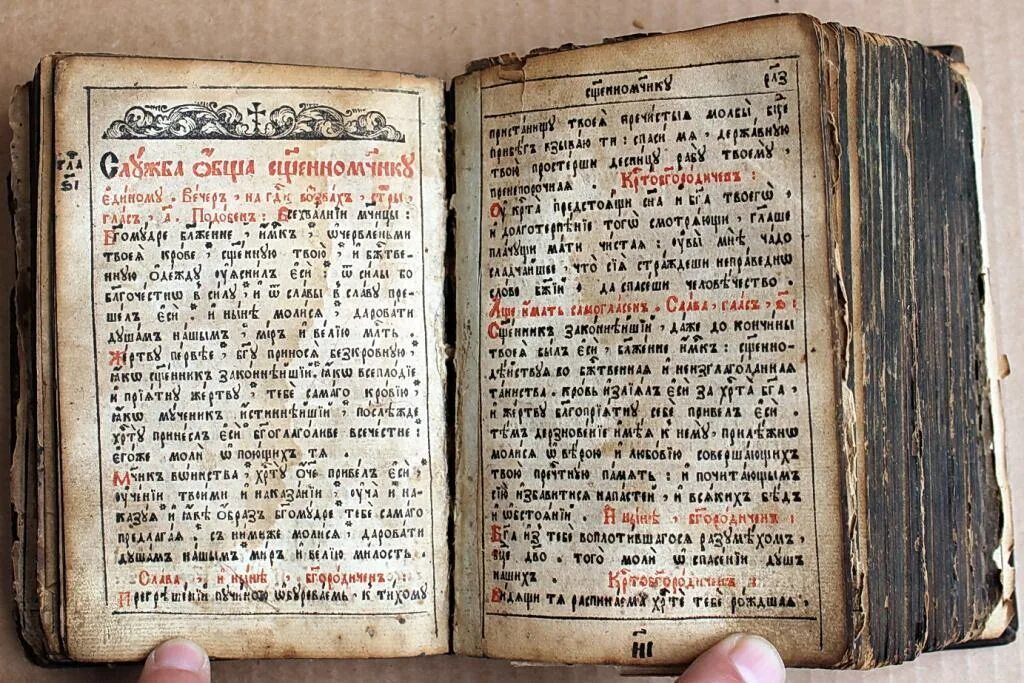 гл҃а
в҃і
Слꙋ́жба ѻ҆́бща сщ҃енномч҃нкꙋ
є҆ди́номꙋ . Ве́черъ , на гдⷭ҇и возва́хъ , стꙋры̀ ,
гла́съ , а҃ . Подо́бенъ : Всехва́лнїи мч҃нцы :
Бг҃омꙋ́дре бл҃же́нне , и҆́м҃къ , ѡ҆червле́ными
твоеѧ̀ кро́ве , сщ҃е́ннꙋю твою̀ , и҆ бж҃тве-
ннꙋю ѻ҆де́ждꙋ ᲂу҆ѧсни́лъ є҆сѝ : ѿ си́лы бо
бл҃гоче́стнѡ в̾ си́лꙋ , и҆ ѿ сла́вы в̾ сла́вꙋ пре-
ше́лъ є҆сѝ . и҆ ны́нѣ моли́сѧ , дарова́ти
дꙋша́мъ на́шымъ , ми́ръ и҆ ве́лїю мл҃ть .
Же́ртвꙋ пе́рвѣе , бг҃ꙋ приносѧ̀ безкро́внꙋю ,
ꙗ҆́кѡ сщ҃е́нникъ зако́ннѣйшїй . ꙗ҆́кѡ всепло́дїе
и҆ прїѧ́тнꙋ же́ртвꙋ , тебѐ самаго̀ кро́вїю ,
ꙗ҆́кѡ мꙋ́ченикъ и҆́стиннѣйшїй , послѣ́жде
хрⷭ҇тꙋ̀ прине́слъ є҆сѝ бг҃оглаго́ливе всече́стне :
є҆го́же молѝ ѡ҆ пою́щихъ тѧ̀ .
Мч҃нкъ во́инства , хрⷭ҇тꙋ̀ ѻ҆́ч҃е приве́лъ є҆сѝ ,
ᲂу҆че́нїи твои́ми и҆ наказа́нїи , ᲂу҆ча̀ и҆ на-
ка́зꙋѧ и҆ ꙗ҆́вѣ ѻ҆́бразъ бг҃омꙋ́дре тебѐ самаго̀
предлага́ѧ : съ ни́миже моли́сѧ , дарова́ти
дꙋша́мъ на́шымъ , ми́ръ и҆ ве́лїю ми́лость .
Сла́ва , и҆ ны́нѣ , бг҃оро́диченъ :
Прегрѣше́нїй пꙋчи́ною ѡ҆бꙋрева́емь , к̾ ти́хомꙋ
сщ҃енномч҃нкꙋ
рл҃з
приста́нищꙋ твоеѧ̀ пречи́стыѧ мольбы̀ бц҃е
прибѣ́гъ взыва́ю тѝ : спаси́ мѧ , держа́внꙋю
твою̀ просте́рши десни́цꙋ рабꙋ̀ твоемꙋ̀ ,
пренепоро́чнаѧ . Кр҃тобг҃оро́диченъ :
Оу҆ кр҃та̀ предстоѧ́щи сн҃а и҆ бг҃а твоегѡ̀ ,
и҆ долготерпѣ́нїе тогѡ̀ смотрѧ́ющи , гл҃аше
пла́чꙋщи ма́ти чи́стаѧ : ᲂу҆вы̀ мнѣ̀ ча́до
сладча́йшее , что̀ сїѧ̀ стра́ждеши непра́веднѡ
сло́ве бж҃їй . да спасе́ши человѣ́чество .
А҆́ще и҆́мать самогла́сенъ . Сла́ва , гла́съ , ѕ҃ :
Сщ҃е́нникъ зако́ннѣйшїй , да́же до кончи́ны
твоеѧ̀ бы́лъ є҆сѝ , бл҃же́нне и҆́м҃къ : сщ҃енно-
дѣ́йствꙋѧ во бж҃твеннаѧ и҆ неизглаго́ланнаѧ
та́инства . кро́вь и҆злїѧ́лъ є҆сѝ за хрⷭ҇та̀ бг҃а ,
и҆ же́ртвꙋ бл҃гопрїѧ́тнꙋ себѐ приве́лъ є҆сѝ .
тѣ́мъ дерзнове́нїе и҆мѣ́ѧ к̾ немꙋ̀ , прилѣ́жнѡ
моли́сѧ ѡ҆ вѣ́рою и҆ любо́вїю соверша́ющихъ
твою̀ пречⷭ҇тнꙋю па́мѧть : и҆ почита́ющымъ
сїю̀ и҆зба́витисѧ напа́стей , и҆ всѧ́кихъ бѣ́дъ
и҆ ѡ҆бстоѧ́нїй . И҆ ны́нѣ , бг҃оро́диченъ :
Бг҃а и҆з̾ тебѐ воплоти́вшагосѧ разꙋмѣ́хомъ ,
бц҃е дв҃о . того̀ молѝ ѡ҆ спасе́нїи дꙋ́шъ
на́шихъ . Кр҃тобг҃оро́диченъ :
Ви́дѧщи тѧ̀ распина́ема хрⷭ҇тѐ тебѐ ро́ждшаѧ ,
н҃і